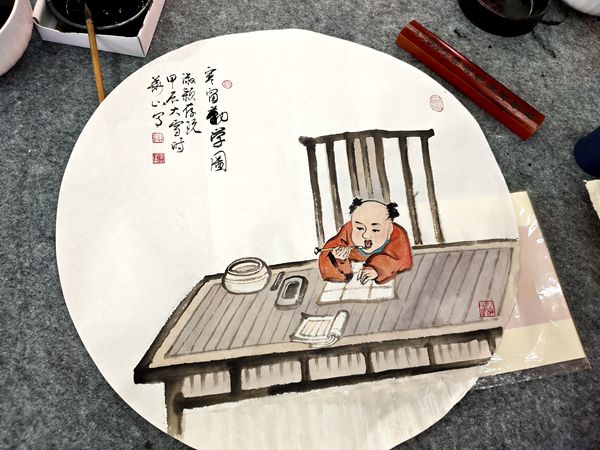 寒窗勤学图
淑颖存玩
甲辰大雪时